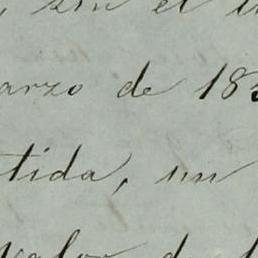 , sin el
arzo de 18
tida, un
valor de